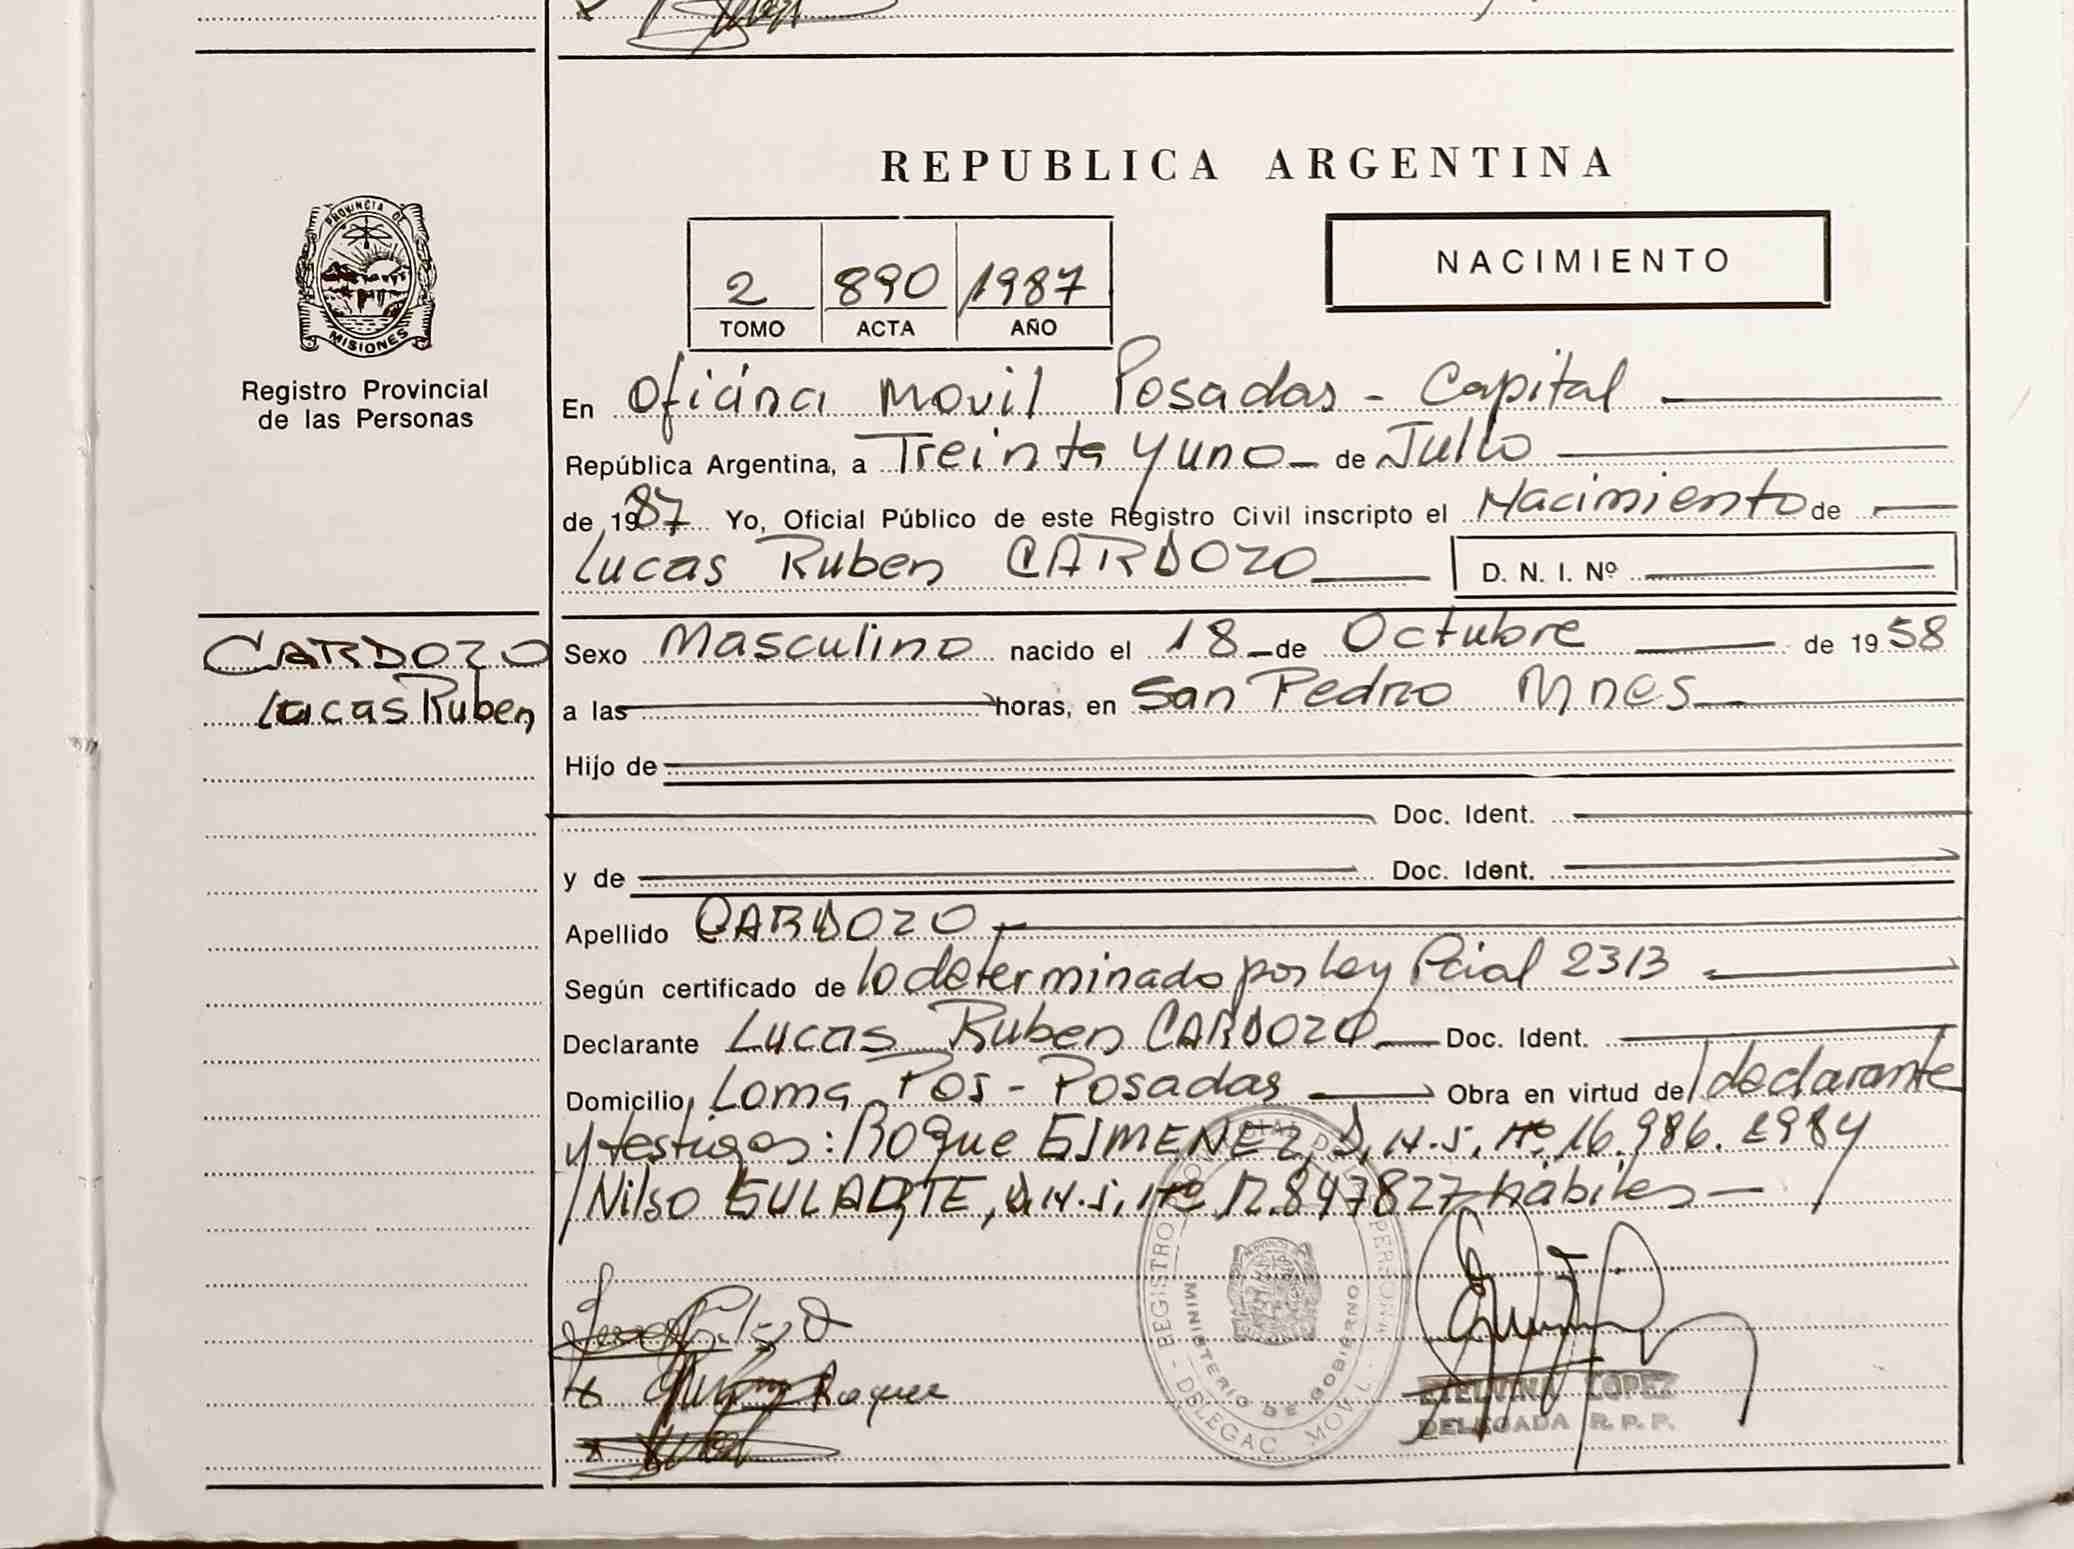 REPUBLICA ARGENTINA
PROVINCIA DE
MISIONES
Registro Provincial
de las Personas
2 890 1987
TOMO ACTA AÑO
NACIMIENTO
En Oficina Movil Posadas - Capital
República Argentina, a Treinta y uno de Julio
de 1987 Yo, Oficial Público de este Registro Civil inscripto el Nacimiento de
Lucas Ruben CARDOZO D. N. I. Nº
CARDOZO
Lucas Ruben
Sexo Masculino nacido el 18 de Octubre de 1958
a las horas, en San Pedro Mnes
Hijo de
Doc. Ident.
y de Doc. Ident.
Apellido CARDOZO
Según certificado de lo determinado por Ley Pcial 2313
Declarante Lucas Ruben CARDOZO Doc. Ident.
Domicilio Loma Pos - Posadas Obra en virtud de declarante
y testigos: Roque GIMENEZ, D.N.I. Nº 16.986.1984
Nilso GULARTE, D.N.I. Nº 12.847827 hábiles
Roque
REGISTRO PROVINCIAL DE LAS PERSONAS
MINISTERIO DE GOBIERNO
DELEGAC. MOVIL
ETELVINA LOPEZ
DELEGADA R. P. P.